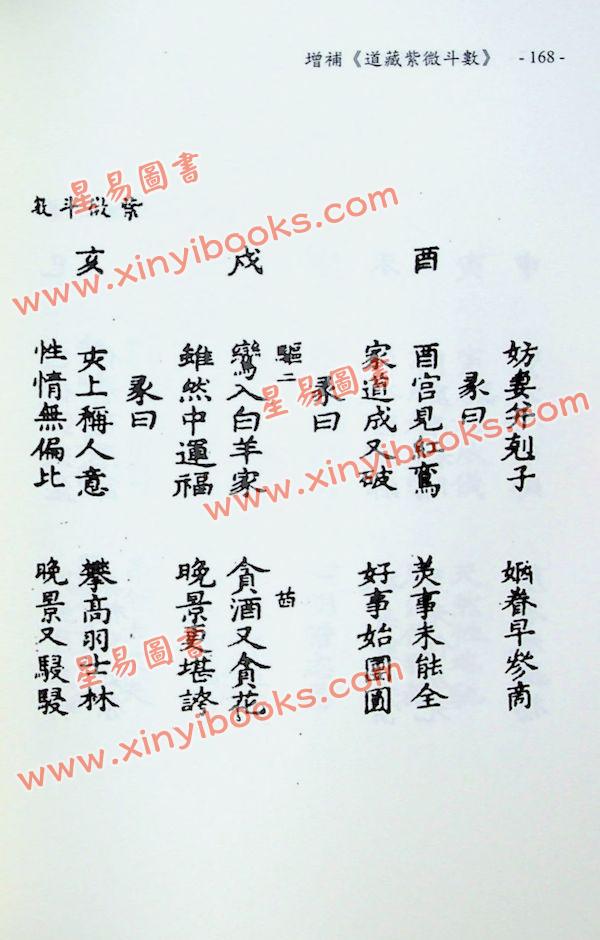 增補《道藏紫微斗數》 - 168 -
妨妻并剋子 姻眷早參商
彖曰
酉 酉宫見紅鸞 美事未能全
家道成又破 好事始團圓
彖曰
驅二
戌 鸞入白羊家 貪酒又貪花
雖然中運福 晚景更堪誇
彖曰
亥 亥上稱人意 攀高羽士林
性情無偏比 晚景又駸駸
紫微斗数
星易圖書
www.xinyibooks.com
星易圖書
www.xinyibooks.com
星易圖書
www.xinyibooks.com